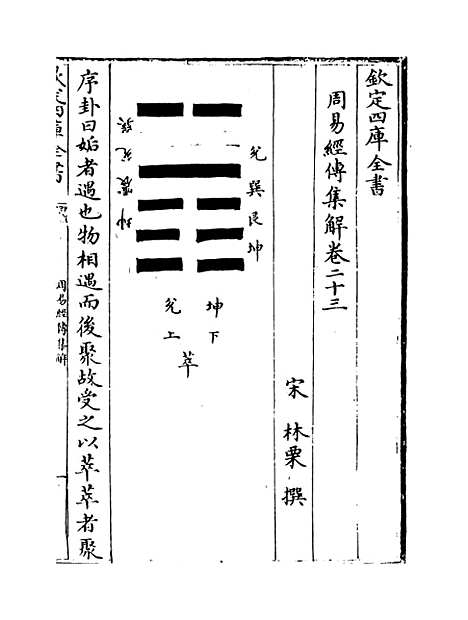 欽定四庫全書
周易經傳集解卷二十三
宋 林栗 撰
兌巽艮坤
坤下
兌上
萃
坤震兌巽
序卦曰姤者遇也物相遇而後聚故受之以萃萃者聚
欽定四庫全書
周易經傳集解
一